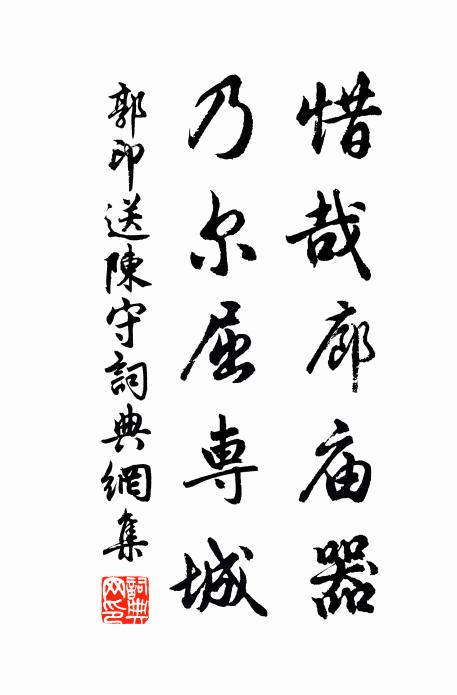 惜哉廊庙器
乃尔屈専城
郭印送陳守詞典網集
詞典网印